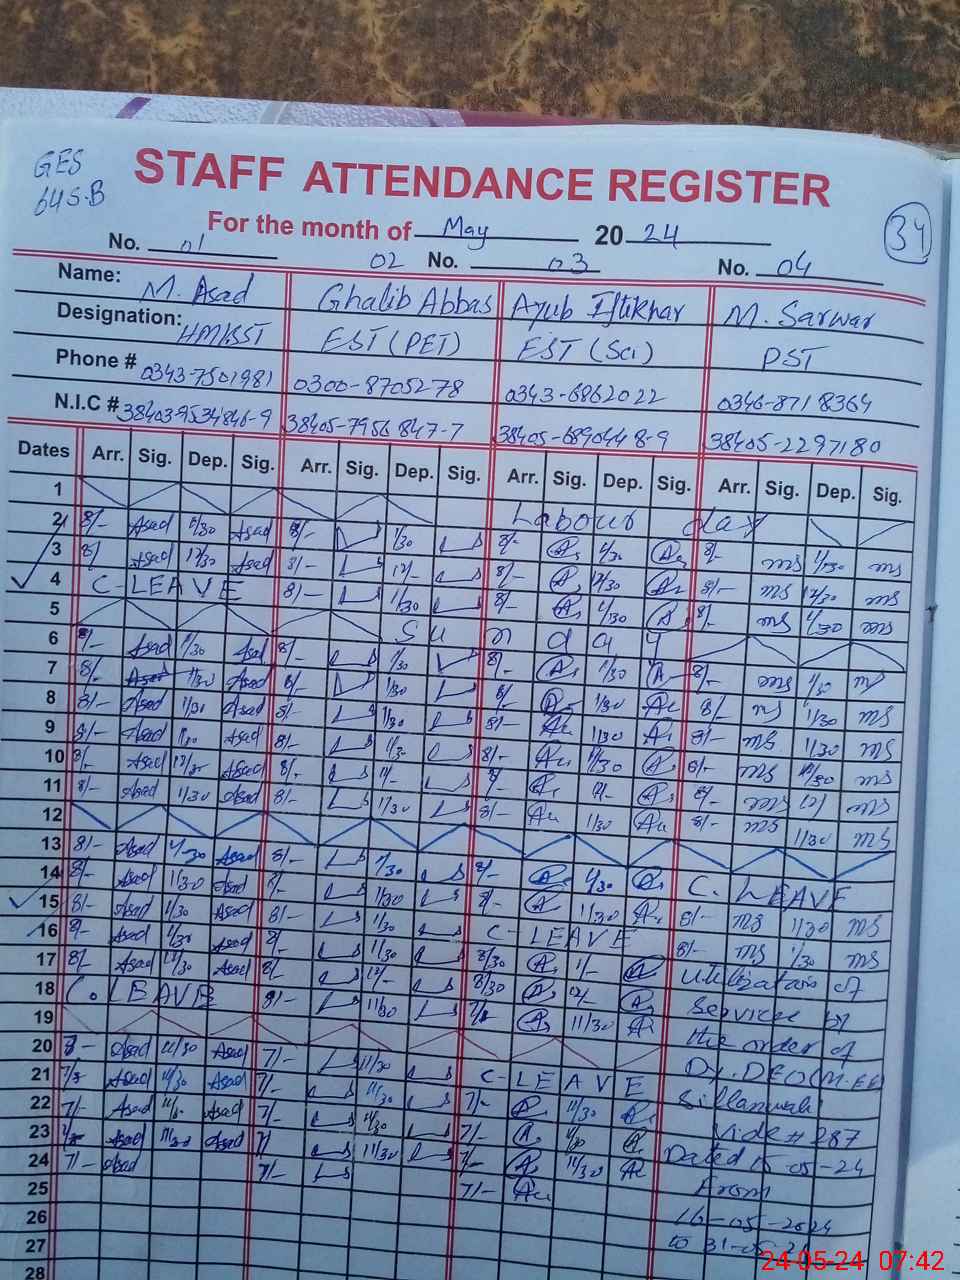 GES
64 S.B
STAFF ATTENDANCE REGISTER
For the month of May 2024
34
No. 01 02 No. 03 No. 04
Name: M. Asad Ghalib Abbas Ayub Iftikhar M. Sarwar
Designation: EST (PET) EST (Sci) PST
Phone # 0343-7501981 0300-8705278 0343-6862022 0346-8718364
N.I.C # 38403-9534846-9 38405-7956847-7 38405-6890448-9 38405-2297180
Dates Arr. Sig. Dep. Sig. Arr. Sig. Dep. Sig. Arr. Sig. Dep. Sig. Arr. Sig. Dep. Sig.
1 Labour day
2 8/- Asad 1/30 Asad 8/- 1/30 8/- 1/30 8/- ms 1/30 ms
3 8/ Asad 12/30 Asad 8/- 12/- 8/- 12/30 8/- ms 12/30 ms
4 C-LEAVE 8/- 1/30 8/- 1/30 8/- ms 1/30 ms
5 Sunday
6 8/- Asad 1/30 Asad 8/- 1/30 8/- 1/30 8/- ms 1/30 ms
7 8/- Asad 1/30 Asad 8/- 1/30 8/- 1/30 8/- ms 1/30 ms
8 8/- Asad 1/30 Asad 8/- 1/30 8/- 1/30 8/- ms 1/30 ms
9 8/- Asad Asad 8/- 1/30 8/- 8/- ms ms
10 8/- Asad Asad 8/- 8/- ms ms
11 8/- Asad 1/30 Asad 8/- 1/30 8/- 1/30 8/- ms 1/30 ms
12
13 8/- Asad 1/30 Asad 8/- 1/30 8/- 1/30 C. LEAVE
14 8/- Asad 1/30 Asad 8/- 11/30 8/- 11/30 8/- ms 11/30 ms
15 8/- Asad 1/30 Asad 8/- 1/30 C-LEAVE 8/- ms 1/30 ms
16 8/- Asad 1/30 Asad 8/- 11/30 8/30 1/- utilization of
17 8/- Asad Asad 8/- 12/- 8/30 12/- Services by
18 C. LEAVE 8/- 11/30 11/30 the order of
19 Dy. DEO (M.EE)
20 Asad 11/30 Asad 7/- 11/30 C-LEAVE Sillanwali
21 Asad 11/30 Asad 7/- 11/30 7/- 11/30 Vide # 287
22 7/- Asad Asad 7/- 11/30 7/- Dated 15-05-24
23 Asad 11/30 Asad 7/ 11/30 7/- 11/30 From
24 7/- Asad 7/- 7/- 16-05-2024
25 to 31-05-24
26
27
28
24-05-24 07:42